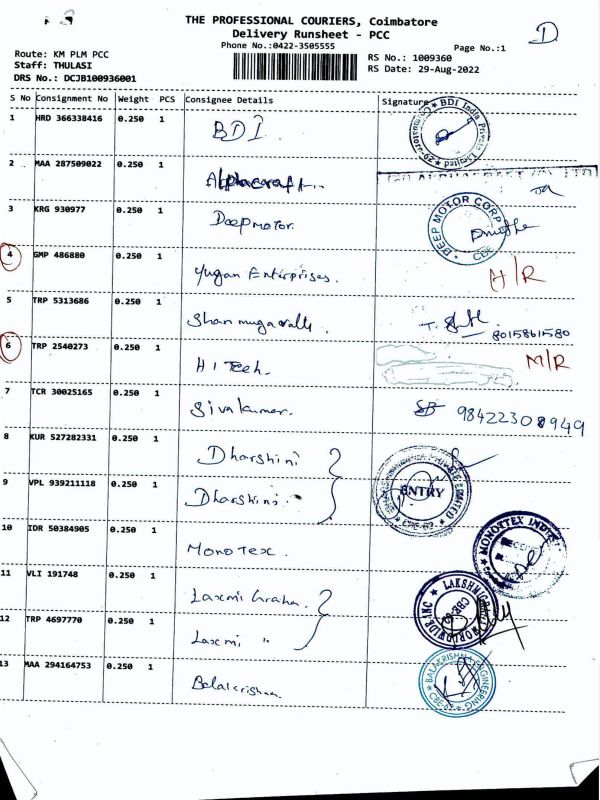 THE PROFESSIONAL COURIERS, Coimbatore
Delivery Runsheet - PCC
D
Phone No.:0422-3505555
Page No.:1
Route: KM PLM PCC
Staff: THULASI
DRS No.: DCJB100936001
RS No.: 1009360
RS Date: 29-Aug-2022
S No Consignment No Weight PCS Consignee Details Signature
1 HRD 366338416 0.250 1 BDI. BDI India Private Limited
2 MAA 287509022 0.250 1
3 KRG 930977 0.250 1 Deepmotor. DEEP MOTOR CORP CBE
4 GMP 486880 0.250 1 Yugan Enterprises. H/R
5 TRP 5313686 0.250 1 8015861580
6 TRP 2540273 0.250 1 HI Tech. M/R
7 TCR 30025165 0.250 1 Sivakumar. 9842230 8949
8 KUR 527282331 0.250 1 Dharshini
9 VPL 939211118 0.250 1 Dharshini ENTRY
10 IDR 50384905 0.250 1 Monotex. MONOTTEX
11 VLI 191748 0.250 1 Laxmi Graha. LAKSHMI WORLDWIDE INC
12 TRP 4697770 0.250 1 Laxmi "
13 MAA 294164753 0.250 1 Balakrishna BALAKRISHNA ENGINEERING